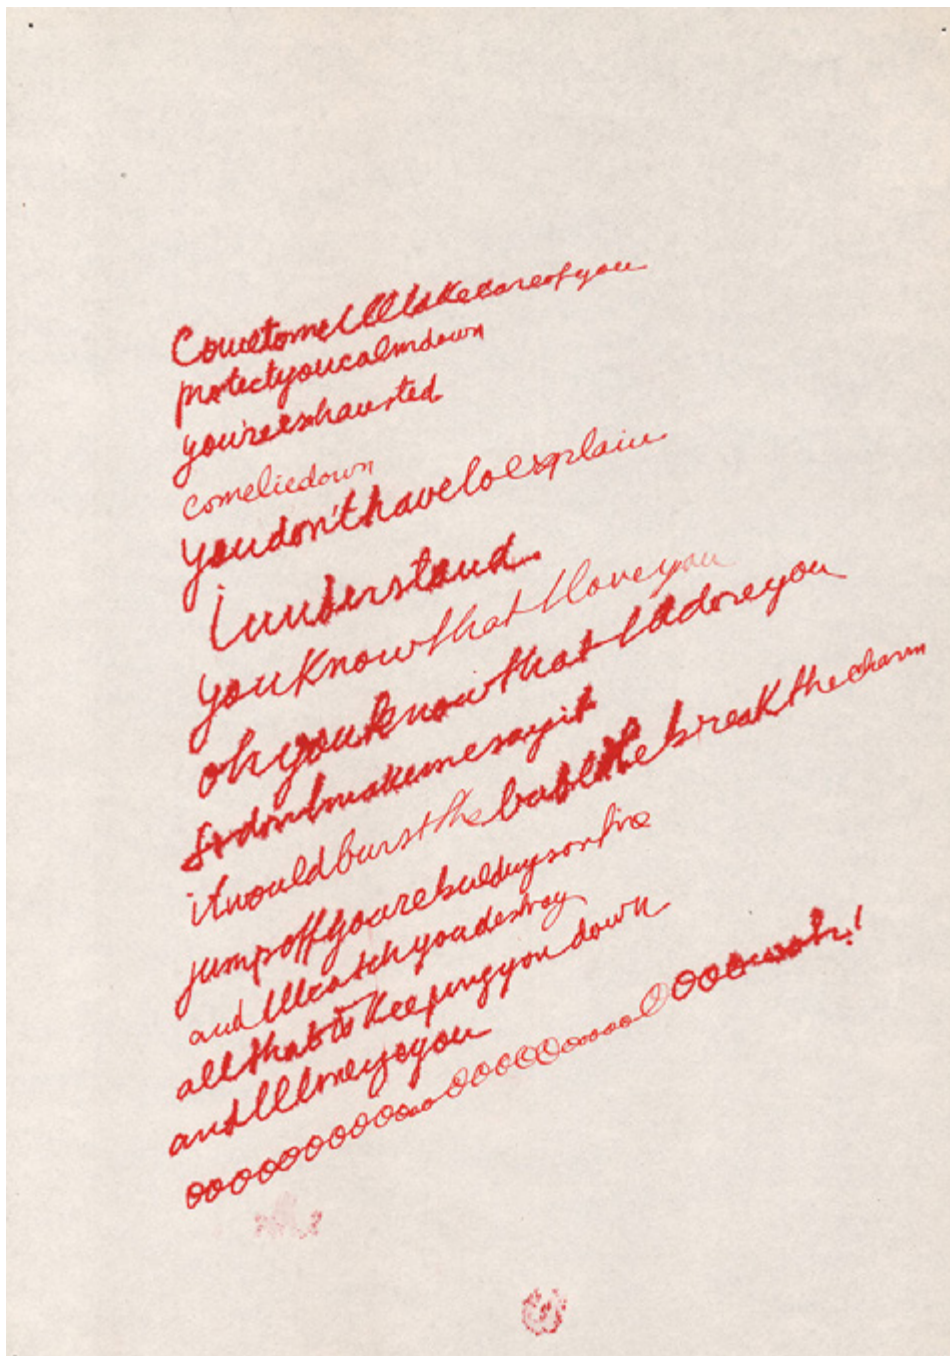 CometomeI'lltakecareofyou
protectyoucalmdown
you'reexhausted
comeliedown
youdon'thavetoexplain
iunderstand.
youknowthatIloveyou
ohyouknowthatIadoreyou
sodontmakemesayit
itwouldburstthebubblebreakthecharm
jumpoffyourebuildingsonfire
andIllcatchyoudestroy
allthatiskeepingyoudown
andIll
oooooooooooooooooooooooooooooooooh!